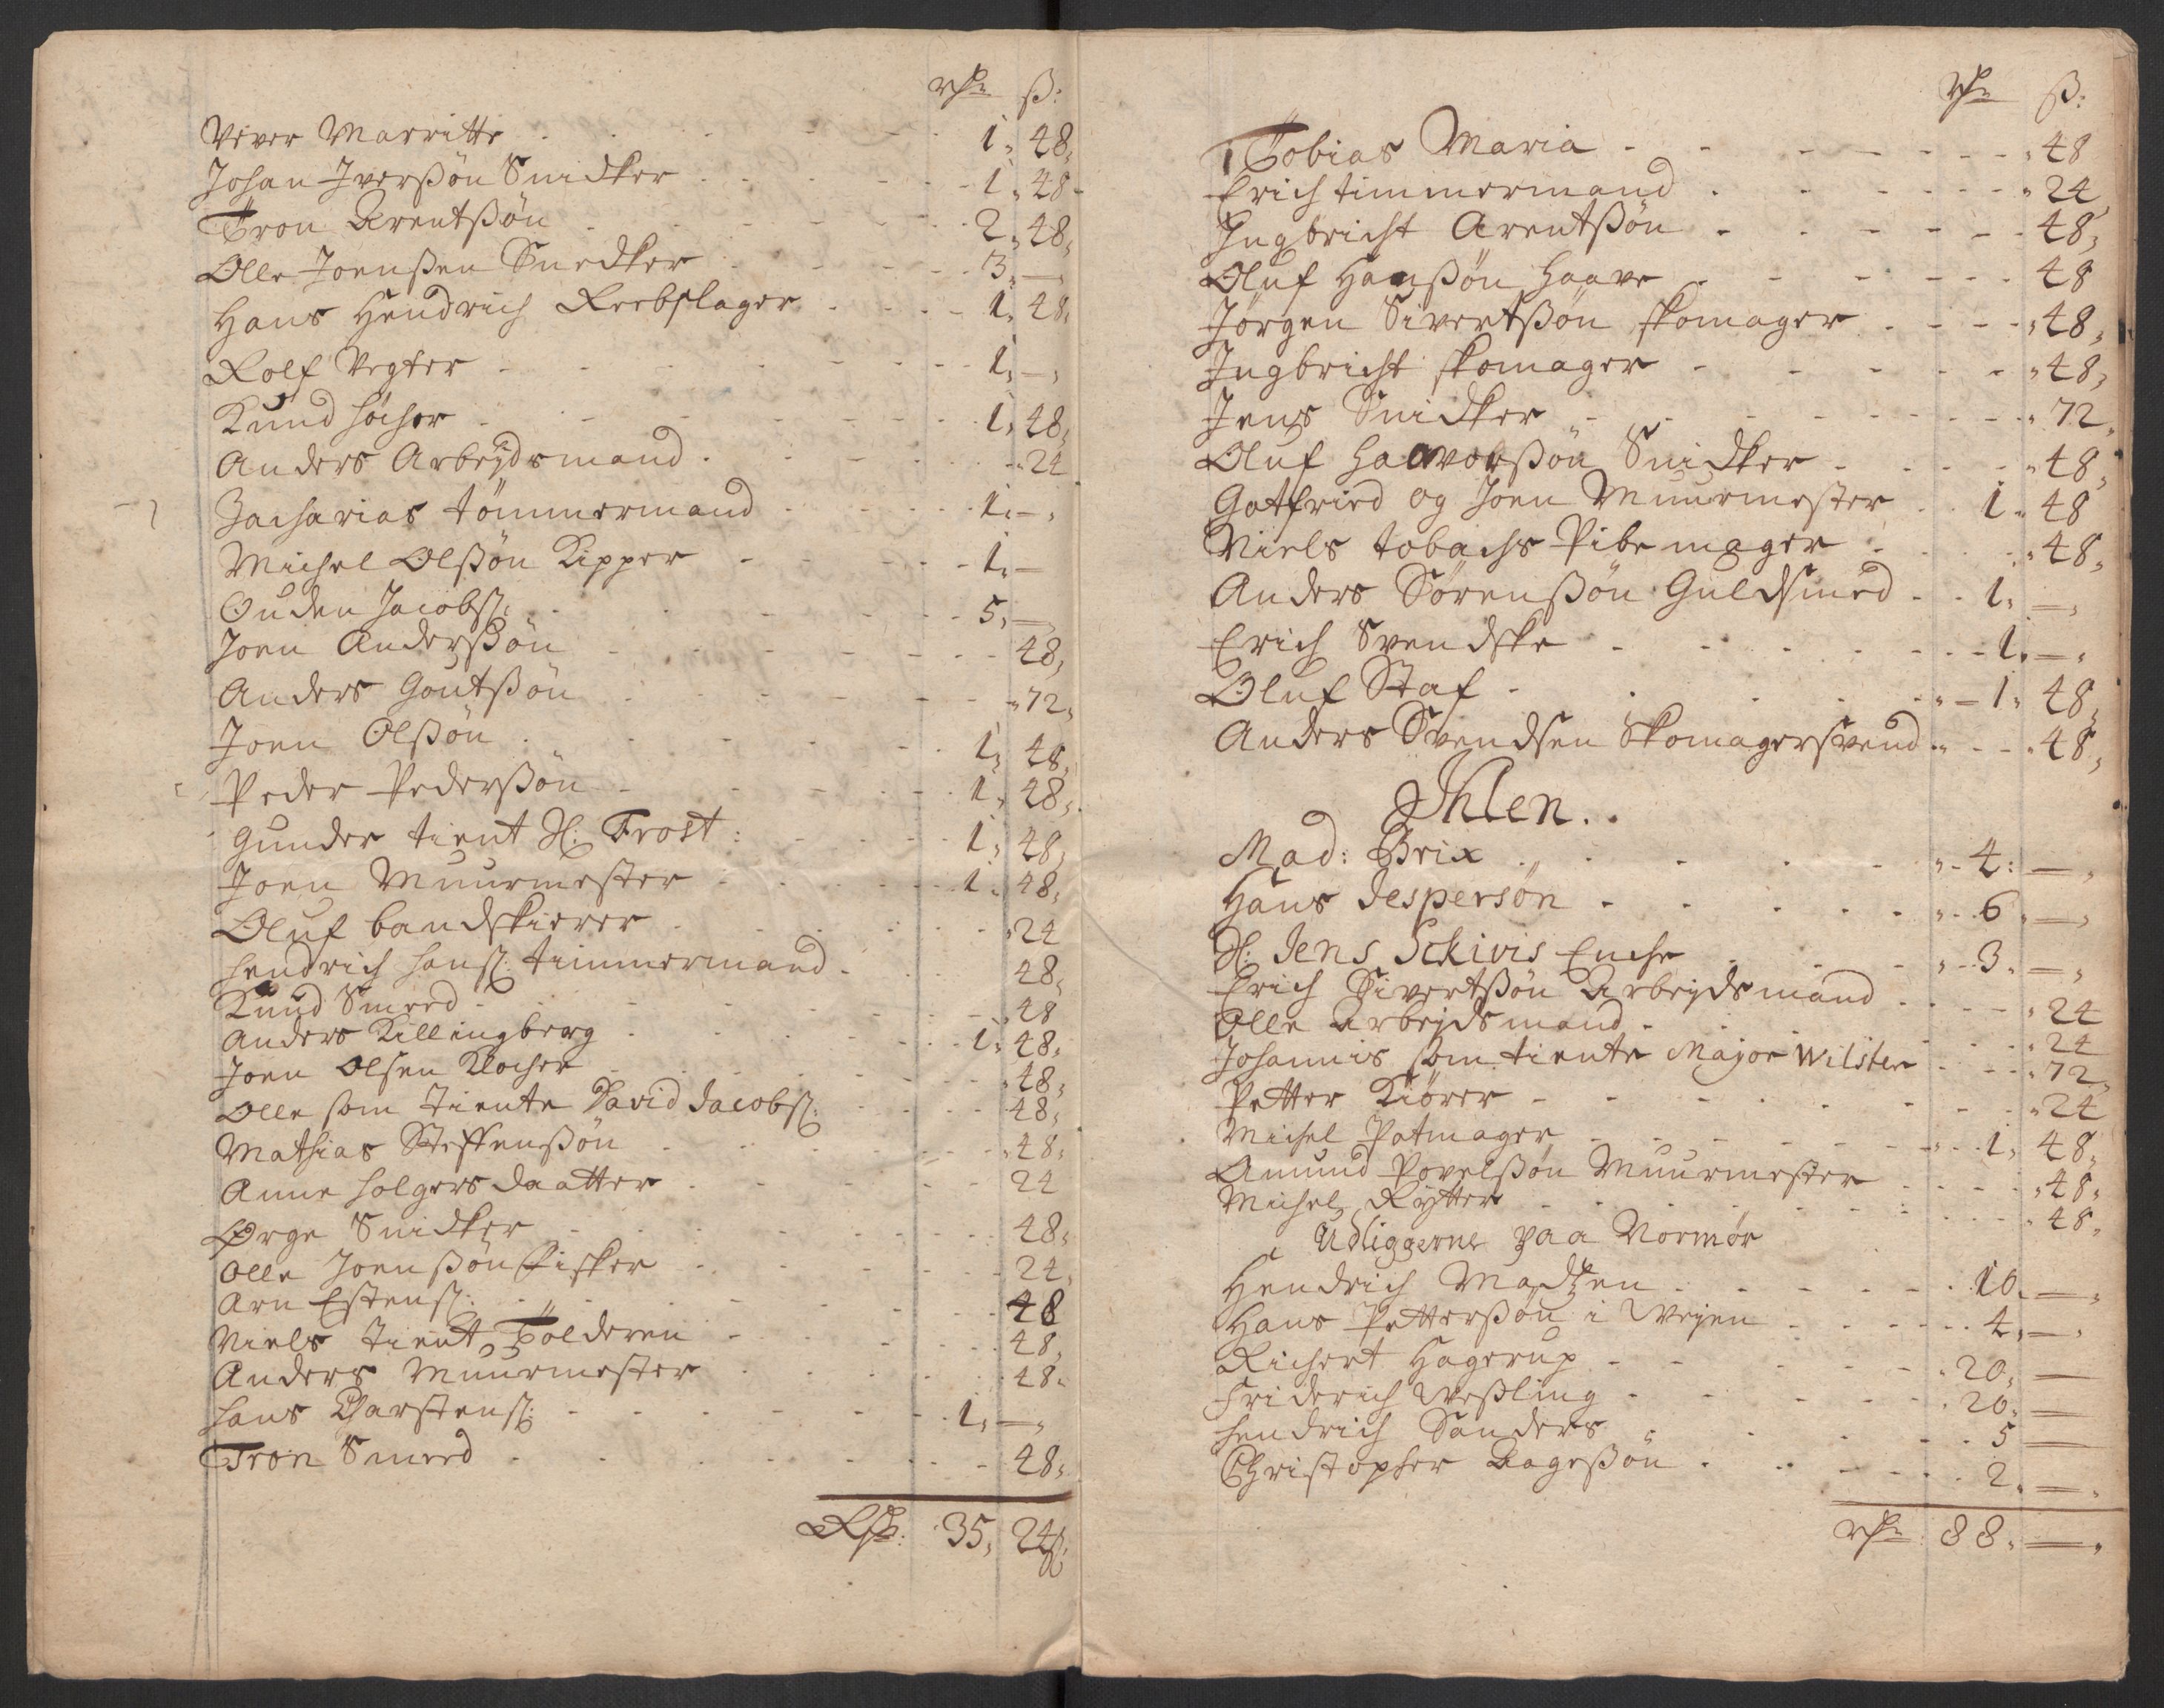 Rdr ß:
Vever Marritte 1, 48,
Johan Iverßön Snidker 1, 48
Tron Arentßön 2, 48,
Olle Joenßen Snedker 3, —
Hans Hendrich Reebslager 1, 48,
Rolf Vegter 1, —,
Knud höcher 1, 48,
Anders Arbeÿdsmand 24
Zacharias tömmermand 1, —,
Michel Olßön Kipper 1, —
Ouden Jacobs: 5, —,
Joen Anderßön 48,
Anders Goutßön 72,
Joen Olßön 1, 48,
Peder Pederßön 1, 48,
Gunder tient H: Frost: 1, 48,
Joen Muurmester 1, 48,
Oluf bandskierer 24
hendrich hans: timmermand 48,
Knud Smed 48
Anders Killingberg 1, 48,
Joen Olsen Klocher 48,
Olle som tiente David Jacobs: 48,
Mathias Steffenßön 48,
Anne holgers daatter 24
Ørge Snidker 48,
Olle Joenßön fisker 24,
Arn Estens: 48
Niels tient Tolderen 48,
Anders Muurmester 48,
hans Charstens: 1, —,
Tron Smed 48,
Rdr: 35, 24ß:
Rdr ß:
Tobias Maria 48
Erich timmermand 24
Ingbricht Arentßön 48,
Oluf Hanßön Haave 48
Jörgen Sivertßön skomager 48,
Ingbricht skomager 48,
Jens Snidker 72,
Oluf Haavorßön Snidker 48,
Gotfried og Joen Muurmester 1, 48
Niels tobachs Pibe mager 48,
Anders Sörenßön Guldsmed 1, —,
Erich Svendske 1, —,
Oluf Staf 1, 48,
Anders Svendsen Skomagersvend 48,
Ihlen.
Mad: Brix 4: —,
Hans Jespersön 6, —,
H: Jens Schivis Enche 3, —,
Erich Sivertßön Arbeÿdsmand 24
Olle Arbeÿdsmand 24
Johannis som tiente Major Wilster 72,
Petter Kiörer 24
Michel Potmager 1, 48,
Amund Povelßön Muurmester 48,
Michel Rÿtter 48,
Udliggerne paa Normør
Hendrich Madtzen 10, —,
Hans Petterßön i Weÿen 4, —,
Richert Hagerup 20, —
Friderich Weßling 20, —
hendrich Sanders 5 —
Christopher Aageßön 2, —,
Rdr 88, —,